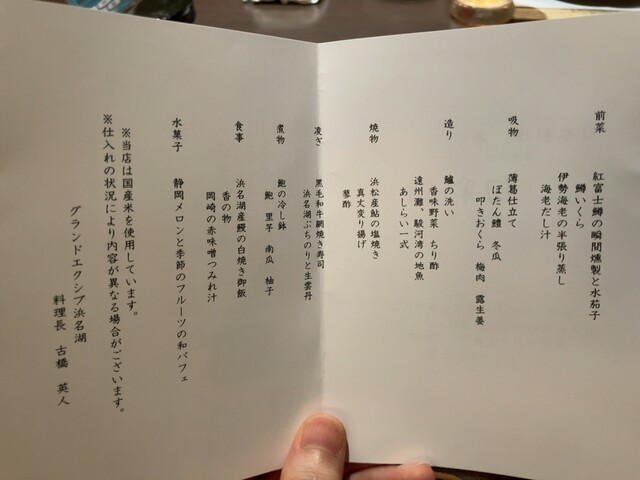 前菜
紅富士鱒の瞬間燻製と水茄子
鱒いくら
伊勢海老の半張り蒸し
海老だし汁
吸物
薄葛仕立て
ぼたん鱧 冬瓜
叩きおくら 梅肉 露生姜
造り
鱸の洗い
香味野菜 ちり酢
遠州灘、駿河湾の地魚
あしらい一式
焼物
浜松産鮎の塩焼き
真丈変り揚げ
蓼酢
凌ぎ
黒毛和牛網焼き寿司
浜名湖ぶちのりと生雲丹
煮物
鮑の冷し鉢
鮑 里芋 南瓜 柚子
食事
浜名湖産鰻の白焼き御飯
香の物
岡崎の赤味噌つみれ汁
水菓子
静岡メロンと季節のフルーツの和パフェ
※当店は国産米を使用しています。
※仕入れの状況により内容が異なる場合がございます。
グランドエクシブ浜名湖
料理長 古橋 英人